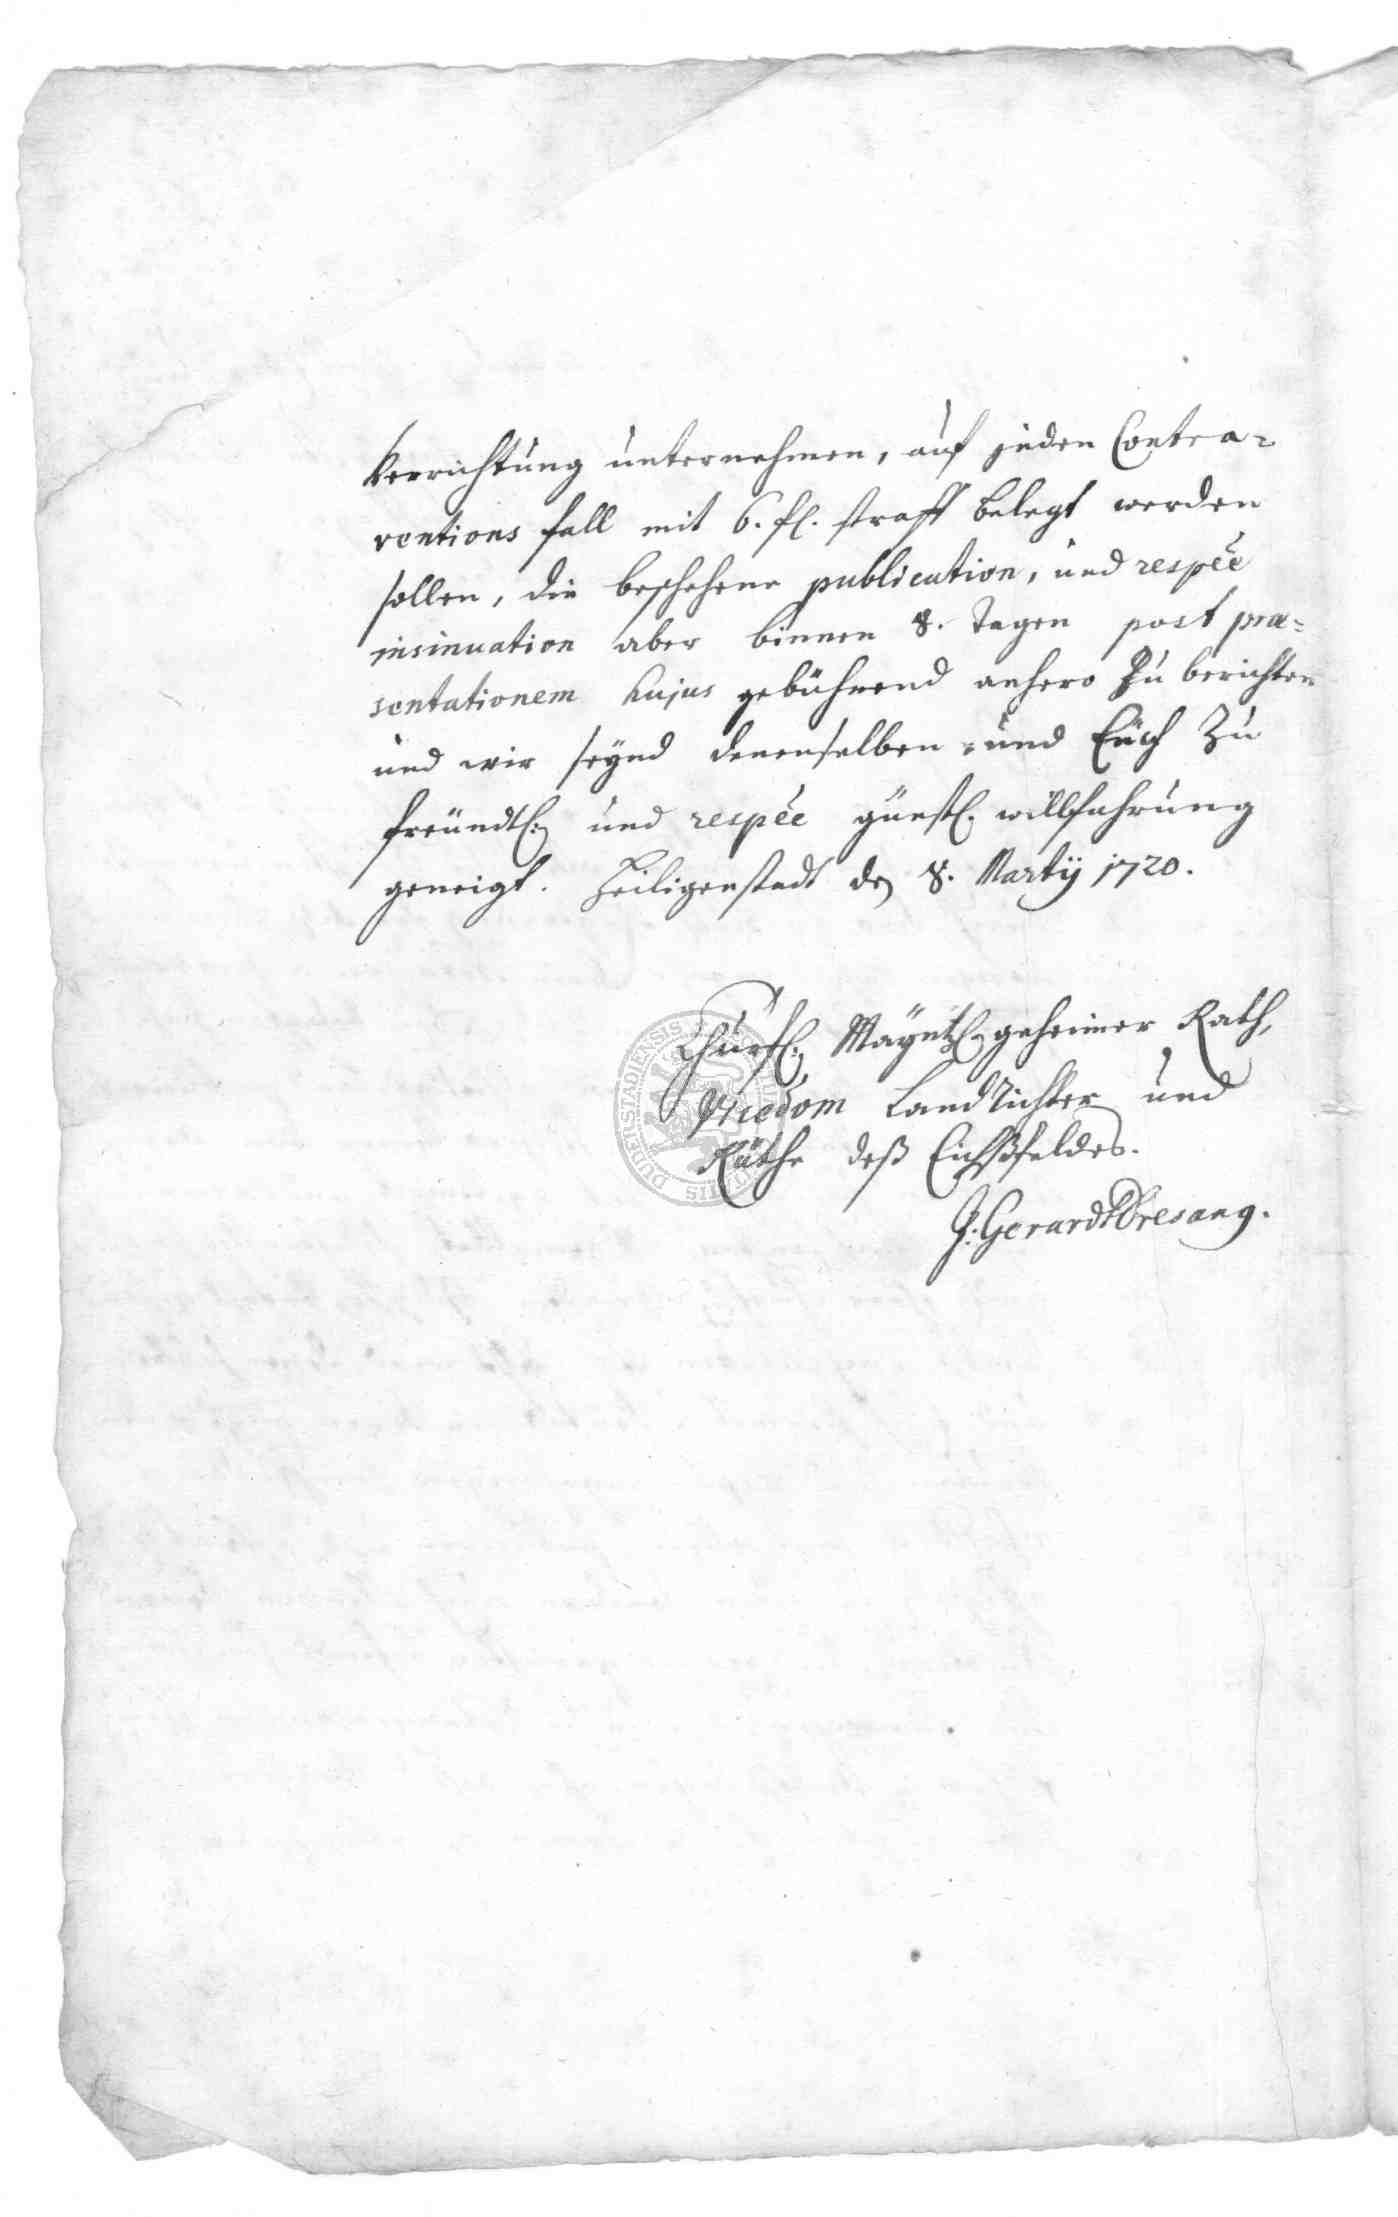 Verrichtung unternehmen, auf jeden Contra=
ventions fall mit 6. fl. straff belegt werden
sollen, die beschehene publication, und respèe
insinuation aber binnen 8. Tagen post præ=
sentationem hujus gebührend anhero zu berichten
und wir seynd denenselben und Euch zu
freündtl: und respèe günstl. willfahrung
geneigt. Heiligenstadt den 8. Martij 1720.
Churfl: Mayntzl. geheimer Rath,
Vicedom Landrichter und
Räthe deß Eichßfeldes.
J: Gerardt Bresang.